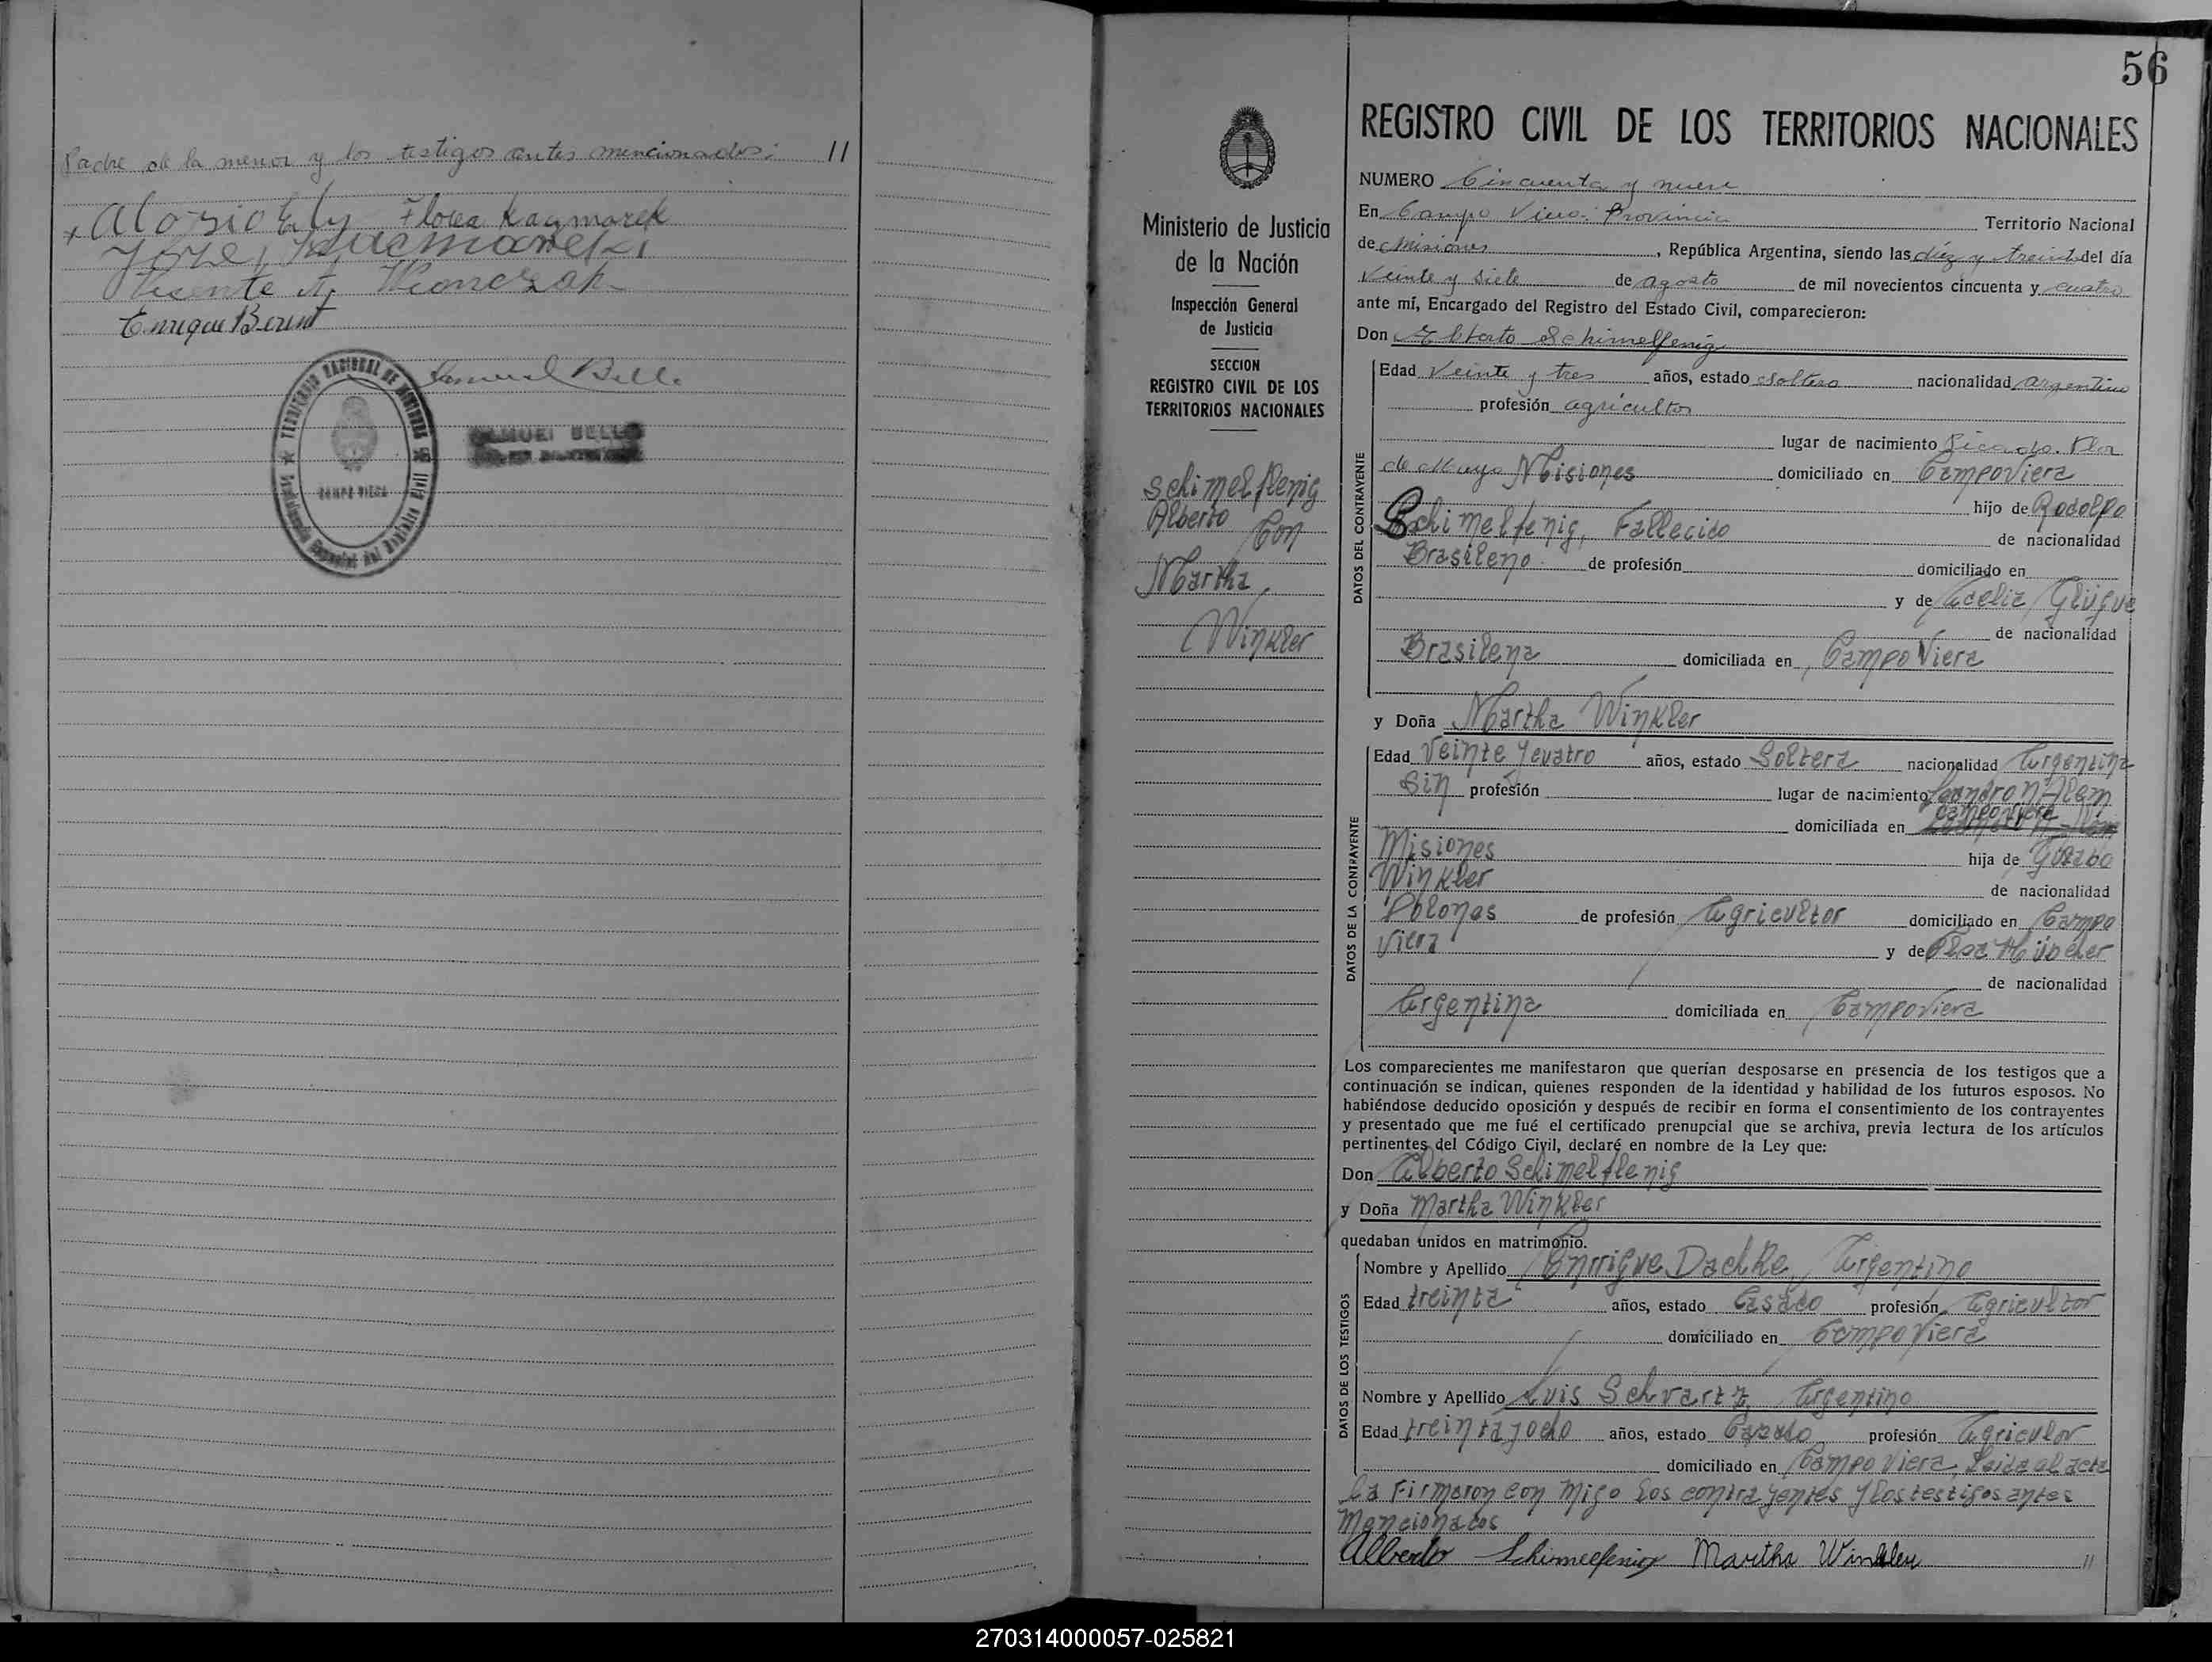 Padre de la menor y los testigos antes mencionados: //
Flora Kaymarek
Vicente A.
Enrique Berent
Samuel Bello
TERRITORIO NACIONAL DE MISIONES
CAMPO VIERA
SAMUEL BELLO
56
REGISTRO CIVIL DE LOS TERRITORIOS NACIONALES
Ministerio de Justicia
de la Nación
Inspección General
de Justicia
SECCION
REGISTRO CIVIL DE LOS
TERRITORIOS NACIONALES
Schimelflenig
Alberto Con
Martha
Winkler
NUMERO Cincuenta y nueve
En Campo Viera Provincia Territorio Nacional
de Misiones, República Argentina, siendo las diéz y treinta del día
Veinte y Siete de agosto de mil novecientos cincuenta y cuatro
ante mí, Encargado del Registro del Estado Civil, comparecieron:
Don Alberto Schimelfenig
DATOS DEL CONTRAYENTE
Edad Veinte y tres años, estado Soltero nacionalidad argentino
profesión agricultor
lugar de nacimiento Picada Flor
de Mayo Misiones domiciliado en CampoViera
hijo de Rodolfo
Schimelfenig, Fallecido de nacionalidad
Brasileno de profesión domiciliado en
y de
de nacionalidad
Brasilena domiciliada en CampoViera
y Doña Martha Winkler
DATOS DE LA CONTRAYENTE
Edad Veinte ycuatro años, estado Soltera nacionalidad Argentina
Sin profesión lugar de nacimiento Leandro N. Alem
domiciliada en CampoViera
Misiones hija de
Winkler de nacionalidad
Polones de profesión Agricultor domiciliado en Campo
Viera y de Elsa
de nacionalidad
Argentina domiciliada en CampoViera
Los comparecientes me manifestaron que querían desposarse en presencia de los testigos que a
continuación se indican, quienes responden de la identidad y habilidad de los futuros esposos. No
habiéndose deducido oposición y después de recibir en forma el consentimiento de los contrayentes
y presentado que me fué el certificado prenupcial que se archiva, previa lectura de los artículos
pertinentes del Código Civil, declaré en nombre de la Ley que:
Don Alberto Schimelflenig
y Doña Martha Winkler
quedaban unidos en matrimonio.
DATOS DE LOS TESTIGOS
Nombre y Apellido Enrrique Dachke Argentino
Edad treinta años, estado Casado profesión Agricultor
domiciliado en CampoViera
Nombre y Apellido Luis Schvartz, Argentino
Edad treinta yocho años, estado Cazado profesión Agriculor
domiciliado en Campo Viera, Leida el acta
la Firmaron con migo los contrayentes y los testigos antes
Mencionados
Alberto Schimelfenig Martha Winkler //
270314000057-025821